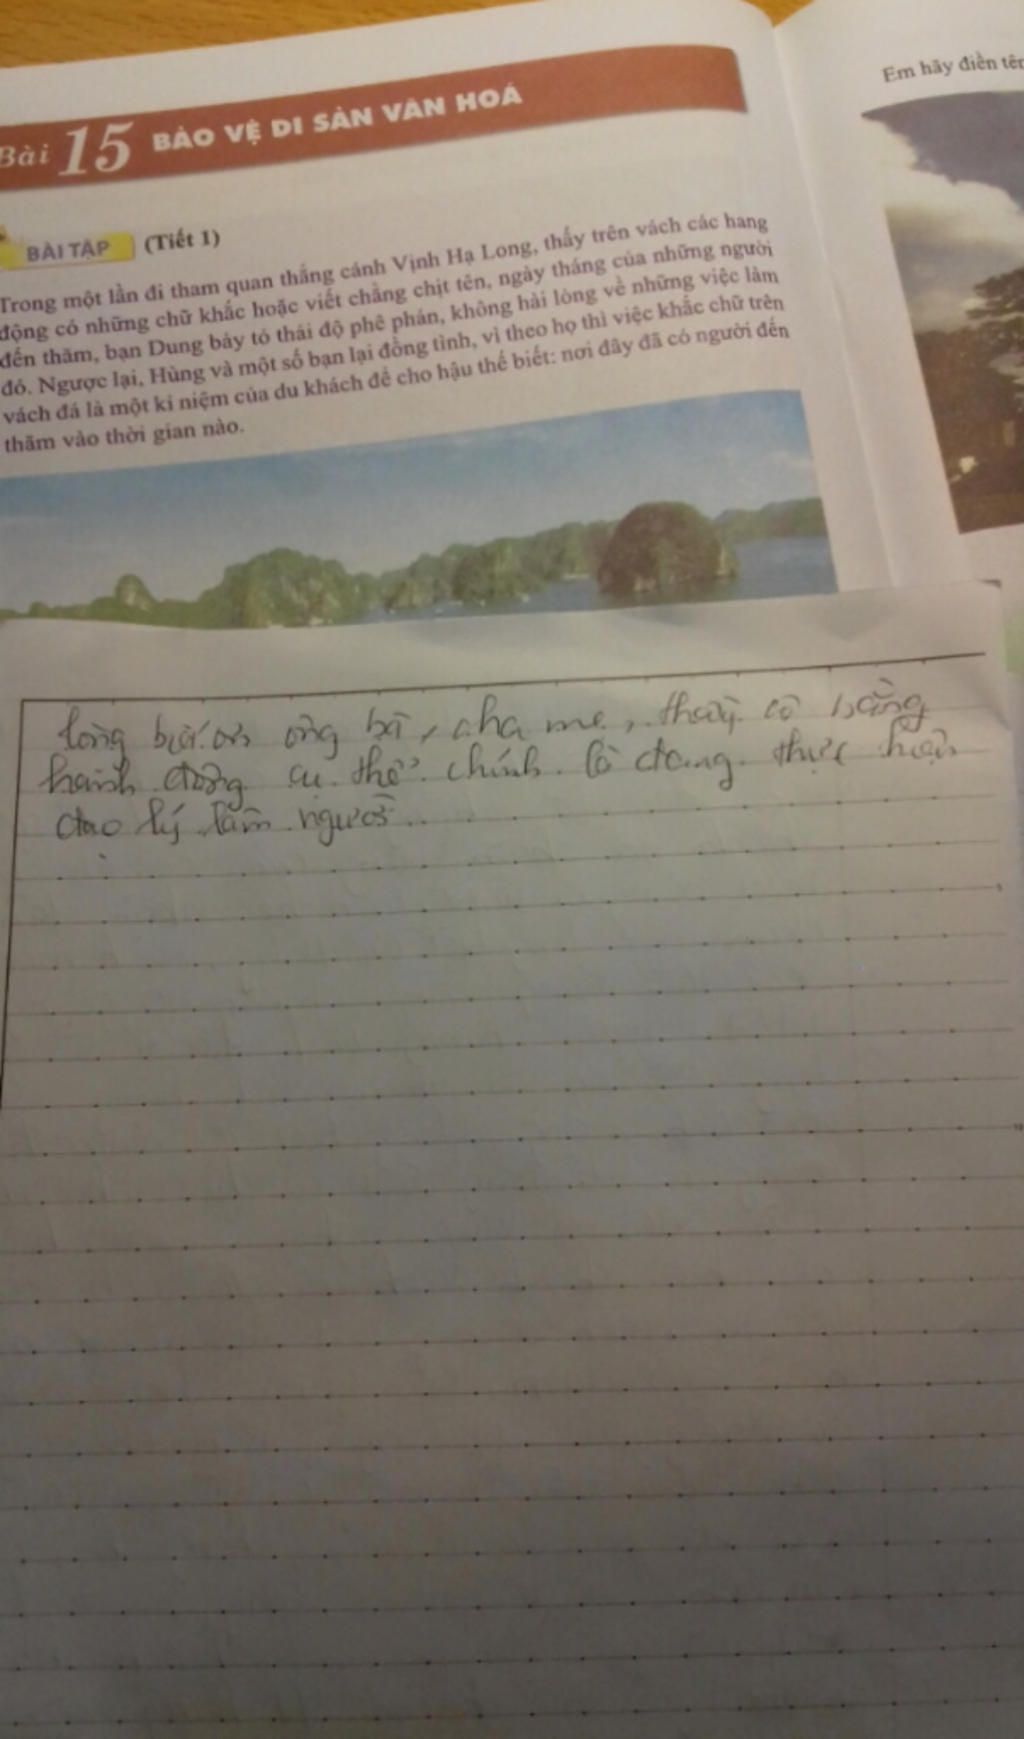 Em hãy điền tên
Bài 15 BẢO VỆ DI SẢN VĂN HOÁ
BÀI TẬP (Tiết 1)
Trong một lần đi tham quan thắng cảnh Vịnh Hạ Long, thấy trên vách các hang
động có những chữ khắc hoặc viết chằng chịt tên, ngày tháng của những người
đến thăm, bạn Dung bày tỏ thái độ phê phán, không hài lòng về những việc làm
đó. Ngược lại, Hùng và một số bạn lại đồng tình, vì theo họ thì việc khắc chữ trên
vách đá là một kỉ niệm của du khách để cho hậu thế biết: nơi đây đã có người đến
thăm vào thời gian nào.
lòng biết ơn ông bà, cha mẹ, thầy cô bằng
hành động cụ thể chính là đang thực hiện
đạo lý làm người